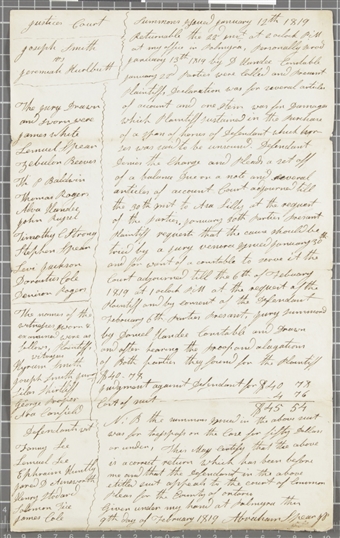 Justices Court
Joseph Smith
vs
Jeremiah Hurlbutt
The jury Drawn
and sworn were
James White
Lemuel Spear
Zebulon Reeves
Th P Baldwin
Thomas Rogers
Alva Handee
John Russel
Timothy C Strong
Stephen Spear
Levi Jackson
Dorastus Cole
Denison Rogers
The names of the
witnesses sworn &
examined were as
follows, Plaintiffs
witnesses
Hyrum Smith
Joseph Smith jun
Silas Shirtliff
George Proper
Asa Canfield
Defendants wit
Fanny Lee
Lemuel Lee
Ephraim Huntley
Jared D Ainsworth
Henry Stodard
Solomon Tice
James Cole
Summons issued January 12th 1819
Returnable the 22 inst at 2 oclock PM
at my office in Palmyra, Personally served
January 13th 1819 by D Handee Constable
January 22 Parties were called and Present
Plaintiffs Declaration was for several articles
of account and one Item was for Damages
which Plaintiff sustained in the Purchase
of a span of horses of Defendant which horses
Defendant
Denies the Charge and Pleads a set off
of a balance Due on a note and several
articles of account Court adjourned till
the 30th inst to Asa Lillys at the request
of the parties, January 30th Parties Present
Plaintiff request that the cause should be
tried by a jury venire issued January 30th
and sent for a constable to serve it the
Court adjourned till the 6th of February
1819 at 1 oclock PM at the request of the
Plaintiff and by consent of the Defendant
February 6th Parties Present, jury summoned
by Daniel Handee Constable and Drawn
and after hearing the proof and allegations
of Both parties they found for the Plaintiff
$40.78
judgment against Defendant for $40 78
Cost of suit 4 76
$45 54
N. B the summons issued in the above suit
was for trespass on the Case for fifty Dollars
or under, This May Certify that the above
is a correct return which has been before
me and that the Defendant in the above
entitled suit appeals to the court of Common
Pleas for the County of ontario
Given under my hand at Palmyra this
9th day of February 1819 Abraham Spear JP